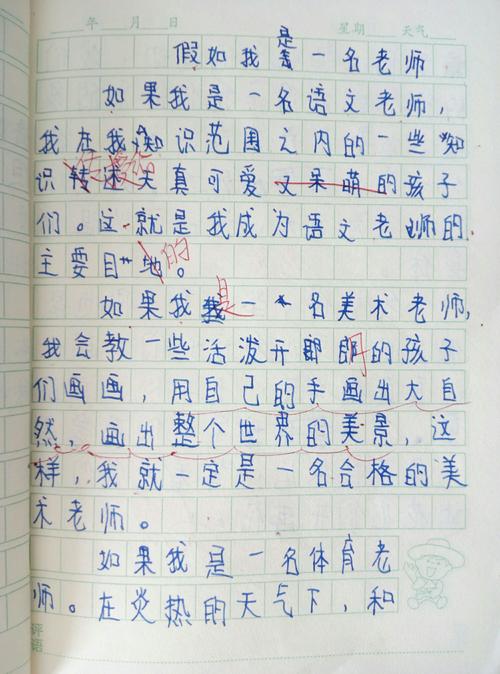 年 月 日 星期 天气
假如我是一名老师
如果我是一名语文老师，
我在我知识范围之内的一些知
识转述传授给天真可爱又呆萌的孩子
们。这就是我成为语文老师的
主要目地的。
如果我是一名美术老师，
我会教一些活泼开朗的孩子
们画画，用自己的手画出大自
然，画出整个世界的美景，这
样，我就一定是一名合格的美
术老师。
如果我是一名体育老
师。在炎热的天气下，和
评语